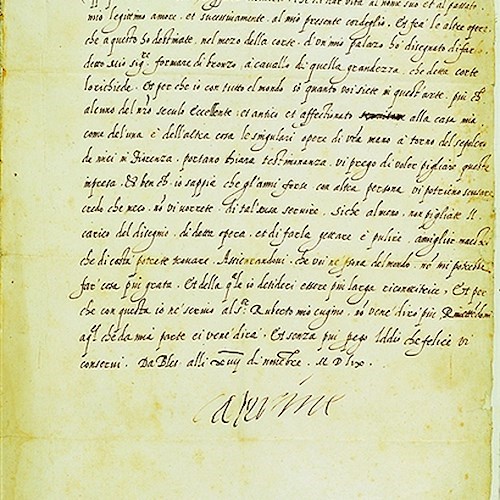 vita al nome suo et al passato
mio legitimo amore. et sucessivamente al mio presente cordoglio. Et fra le altre opere
che a questo ho destinate, nel mezo della corte d'un mio palazo ho disegnato di farlo
detto mio sig.re formare di bronzo, a cavallo di quella grandezza, che detta corte
lo richiede. et per che io con tutto el mondo so quanto voi siete in quest'arte piu ch
alcuno del nro seculo eccellente, et antico et affectionato alla casa mia
come del una e dell'altra cosa le singulari opere di vrã mano a torno del sepolcro
de miei in Fiorenza, portano chiara testimonanza, vi prego di voler pigliare questa
impresa. Et ben ch io sappia che gl'anni forse con altra persona vi potrieno scusare
credo che meco non vi vorrete di tal scusa servire. Siche al meno, non pigliate il
carico del disegnio, di detta opera, et di farla gettare e pulire a migliori maestri
che di costà potrete trovare. Assicurandovi, che voi ne psona del mondo, nõ mi potrebbe
far cosa piu grata. et della qle io desideri essere piu larga riconoscitrice, et per
che con questa io ne scrivo al s.r Ruberto mio cugino, nõ vene diro piu Rimettendomi
a ql che da mia parte ei vene dirà. Et senza piu pgo Iddio che felice vi
conservi. Da Bles. alli xiiij di novẽbre. M D lix.
Caterine